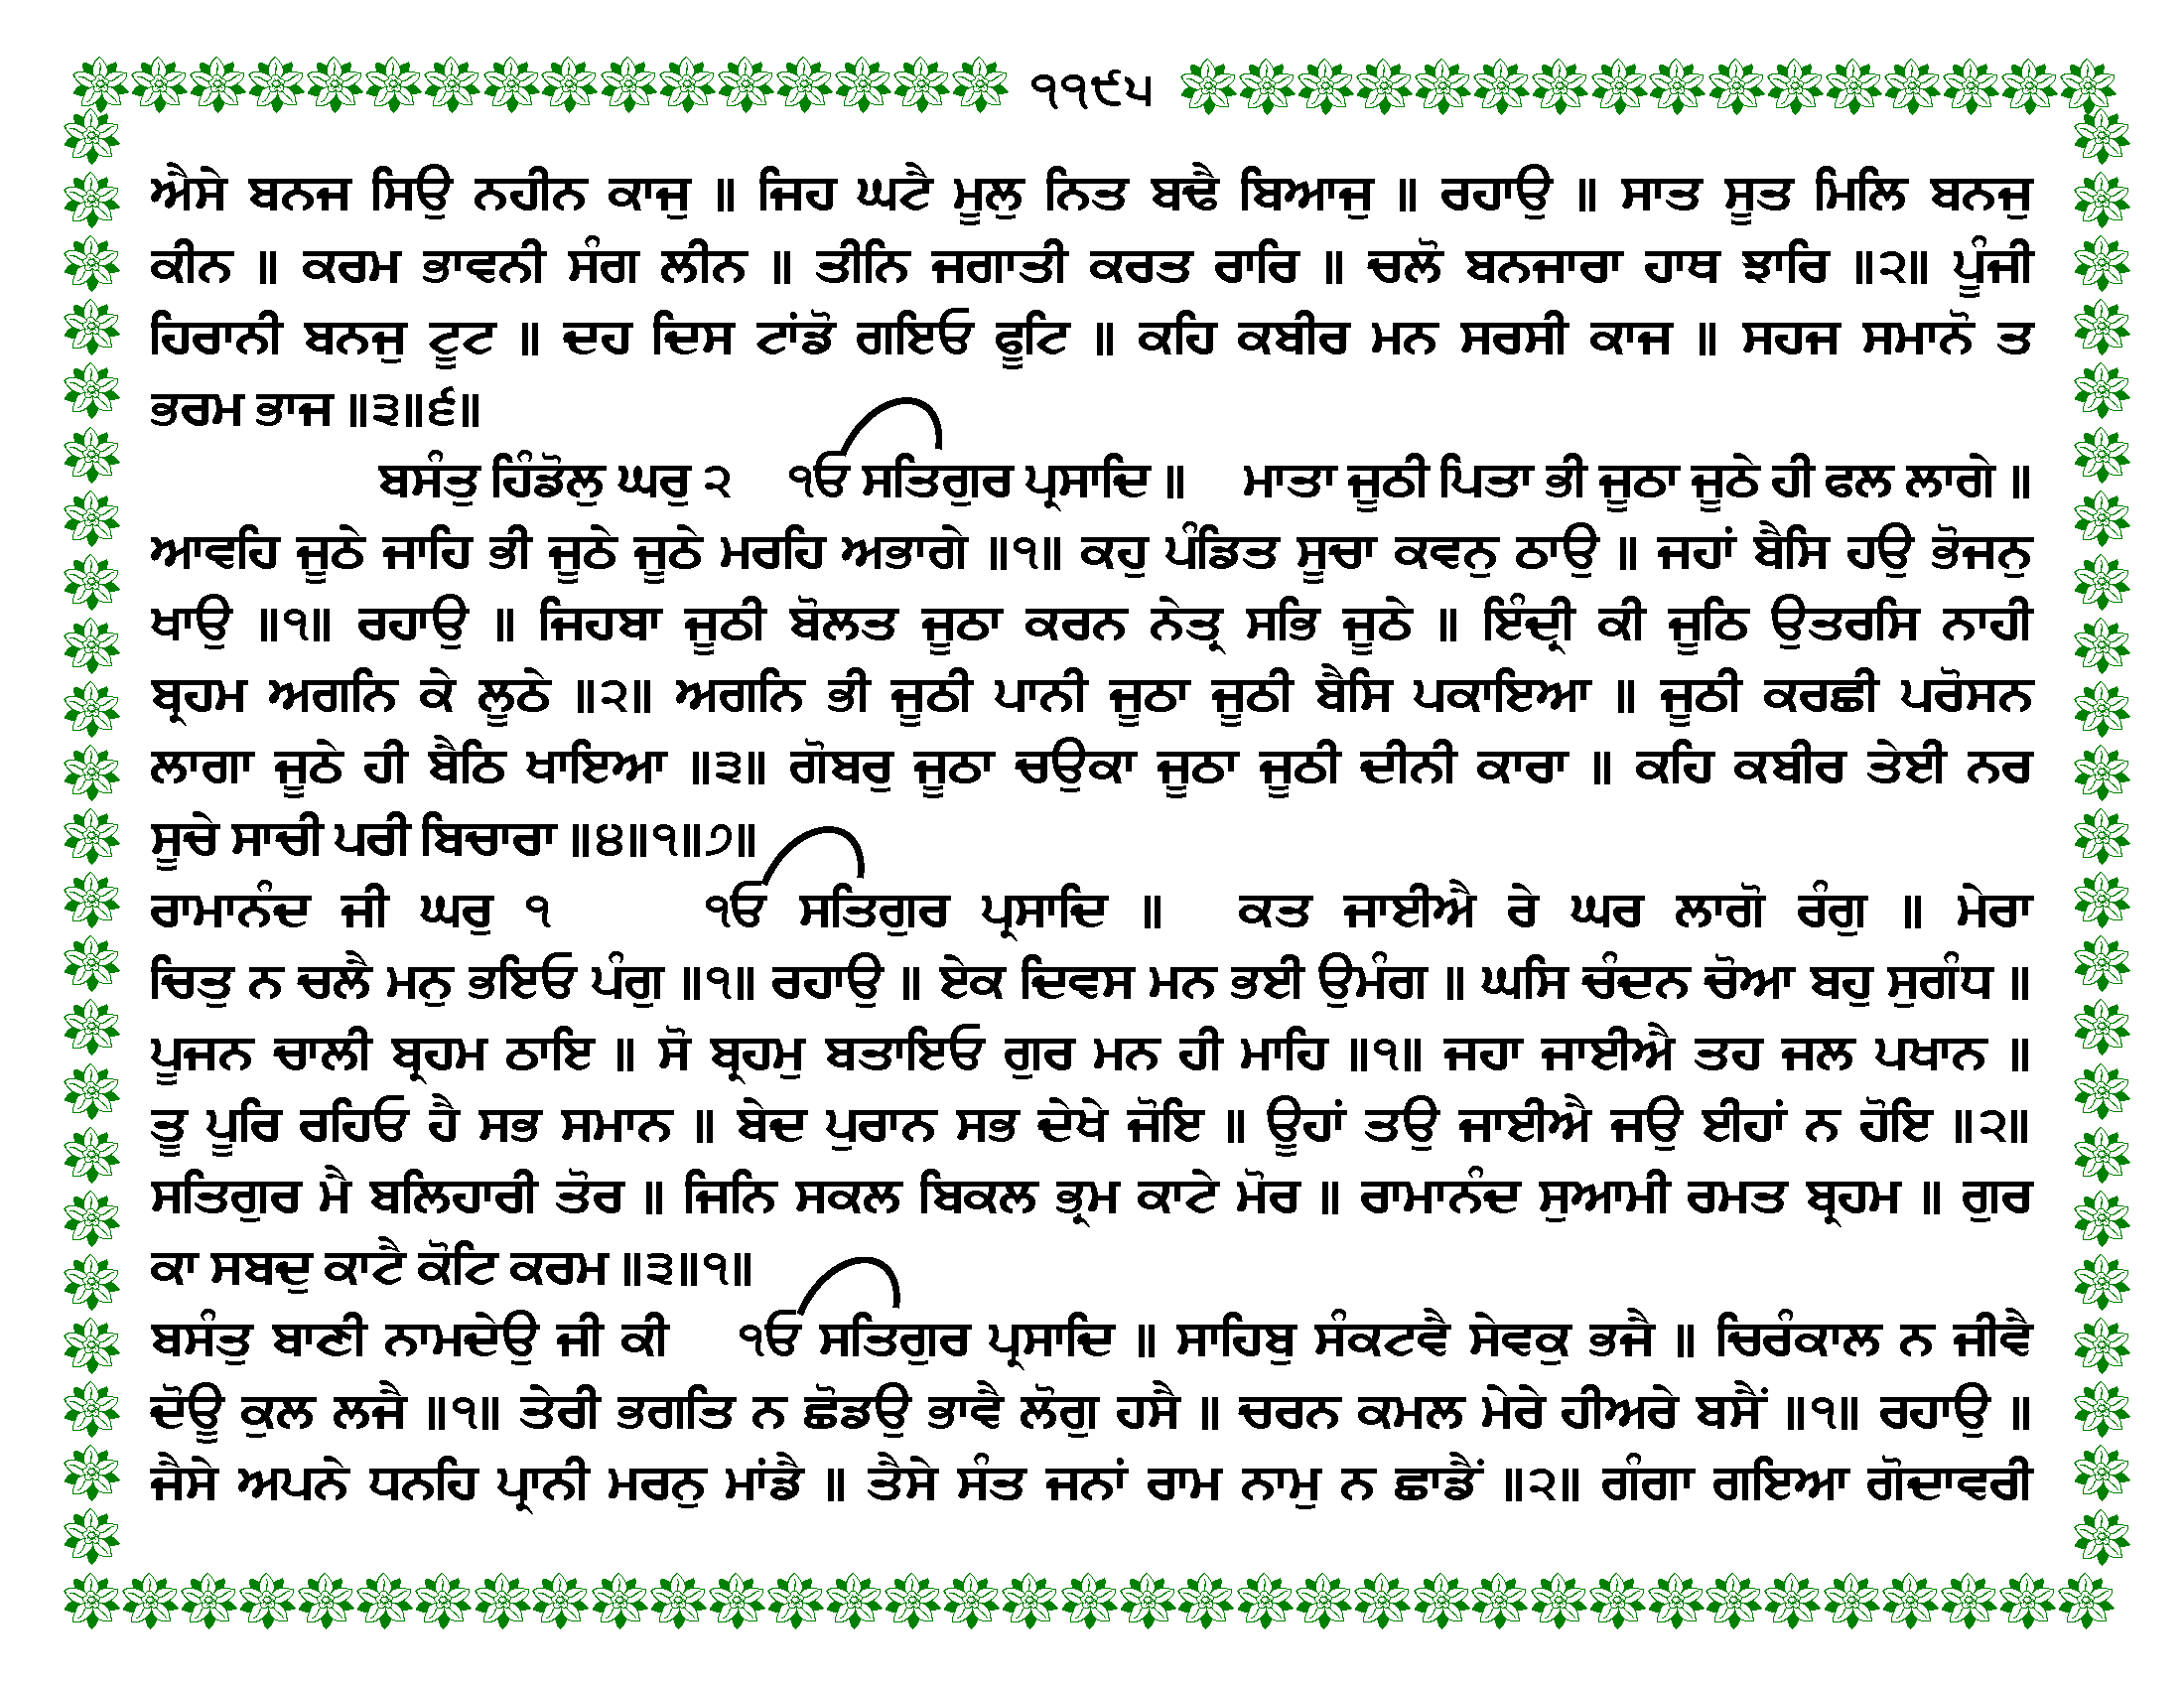 ੧੧੯੫
ਐਸੇ ਬਨਜ ਸਿਉ ਨਹੀਨ ਕਾਜੁ ॥ ਜਿਹ ਘਟੈ ਮੂਲੁ ਨਿਤ ਬਢੈ ਬਿਆਜੁ ॥ ਰਹਾਉ ॥ ਸਾਤ ਸੂਤ ਮਿਲਿ ਬਨਜੁ
ਕੀਨ ॥ ਕਰਮ ਭਾਵਨੀ ਸੰਗ ਲੀਨ ॥ ਤੀਨਿ ਜਗਾਤੀ ਕਰਤ ਰਾਰਿ ॥ ਚਲੋ ਬਨਜਾਰਾ ਹਾਥ ਝਾਰਿ ॥੨॥ ਪੂੰਜੀ
ਹਿਰਾਨੀ ਬਨਜੁ ਟੂਟ ॥ ਦਹ ਦਿਸ ਟਾਂਡੋ ਗਇਓ ਫੂਟਿ ॥ ਕਹਿ ਕਬੀਰ ਮਨ ਸਰਸੀ ਕਾਜ ॥ ਸਹਜ ਸਮਾਨੋ ਤ
ਭਰਮ ਭਾਜ ॥੩॥੬॥
ਬਸੰਤੁ ਹਿੰਡੋਲੁ ਘਰੁ ੨ ੴ ਸਤਿਗੁਰ ਪ੍ਰਸਾਦਿ ॥ ਮਾਤਾ ਜੂਠੀ ਪਿਤਾ ਭੀ ਜੂਠਾ ਜੂਠੇ ਹੀ ਫਲ ਲਾਗੇ ॥
ਆਵਹਿ ਜੂਠੇ ਜਾਹਿ ਭੀ ਜੂਠੇ ਜੂਠੇ ਮਰਹਿ ਅਭਾਗੇ ॥੧॥ ਕਹੁ ਪੰਡਿਤ ਸੂਚਾ ਕਵਨੁ ਠਾਉ ॥ ਜਹਾਂ ਬੈਸਿ ਹਉ ਭੋਜਨੁ
ਖਾਉ ॥੧॥ ਰਹਾਉ ॥ ਜਿਹਬਾ ਜੂਠੀ ਬੋਲਤ ਜੂਠਾ ਕਰਨ ਨੇਤ੍ਰ ਸਭਿ ਜੂਠੇ ॥ ਇੰਦ੍ਰੀ ਕੀ ਜੂਠਿ ਉਤਰਸਿ ਨਾਹੀ
ਬ੍ਰਹਮ ਅਗਨਿ ਕੇ ਲੂਠੇ ॥੨॥ ਅਗਨਿ ਭੀ ਜੂਠੀ ਪਾਨੀ ਜੂਠਾ ਜੂਠੀ ਬੈਸਿ ਪਕਾਇਆ ॥ ਜੂਠੀ ਕਰਛੀ ਪਰੋਸਨ
ਲਾਗਾ ਜੂਠੇ ਹੀ ਬੈਠਿ ਖਾਇਆ ॥੩॥ ਗੋਬਰੁ ਜੂਠਾ ਚਉਕਾ ਜੂਠਾ ਜੂਠੀ ਦੀਨੀ ਕਾਰਾ ॥ ਕਹਿ ਕਬੀਰ ਤੇਈ ਨਰ
ਸੂਚੇ ਸਾਚੀ ਪਰੀ ਬਿਚਾਰਾ ॥੪॥੧॥੭॥
ਰਾਮਾਨੰਦ ਜੀ ਘਰੁ ੧ ੴ ਸਤਿਗੁਰ ਪ੍ਰਸਾਦਿ ॥ ਕਤ ਜਾਈਐ ਰੇ ਘਰ ਲਾਗੋ ਰੰਗੁ ॥ ਮੇਰਾ
ਚਿਤੁ ਨ ਚਲੈ ਮਨੁ ਭਇਓ ਪੰਗੁ ॥੧॥ ਰਹਾਉ ॥ ਏਕ ਦਿਵਸ ਮਨ ਭਈ ਉਮੰਗ ॥ ਘਸਿ ਚੰਦਨ ਚੋਆ ਬਹੁ ਸੁਗੰਧ ॥
ਪੂਜਨ ਚਾਲੀ ਬ੍ਰਹਮ ਠਾਇ ॥ ਸੋ ਬ੍ਰਹਮੁ ਬਤਾਇਓ ਗੁਰ ਮਨ ਹੀ ਮਾਹਿ ॥੧॥ ਜਹਾ ਜਾਈਐ ਤਹ ਜਲ ਪਖਾਨ ॥
ਤੂ ਪੂਰਿ ਰਹਿਓ ਹੈ ਸਭ ਸਮਾਨ ॥ ਬੇਦ ਪੁਰਾਨ ਸਭ ਦੇਖੇ ਜੋਇ ॥ ਊਹਾਂ ਤਉ ਜਾਈਐ ਜਉ ਈਹਾਂ ਨ ਹੋਇ ॥੨॥
ਸਤਿਗੁਰ ਮੈ ਬਲਿਹਾਰੀ ਤੋਰ ॥ ਜਿਨਿ ਸਕਲ ਬਿਕਲ ਭ੍ਰਮ ਕਾਟੇ ਮੋਰ ॥ ਰਾਮਾਨੰਦ ਸੁਆਮੀ ਰਮਤ ਬ੍ਰਹਮ ॥ ਗੁਰ
ਕਾ ਸਬਦੁ ਕਾਟੈ ਕੋਟਿ ਕਰਮ ॥੩॥੧॥
ਬਸੰਤੁ ਬਾਣੀ ਨਾਮਦੇਉ ਜੀ ਕੀ ੴ ਸਤਿਗੁਰ ਪ੍ਰਸਾਦਿ ॥ ਸਾਹਿਬੁ ਸੰਕਟਵੈ ਸੇਵਕੁ ਭਜੈ ॥ ਚਿਰੰਕਾਲ ਨ ਜੀਵੈ
ਦੋਊ ਕੁਲ ਲਜੈ ॥੧॥ ਤੇਰੀ ਭਗਤਿ ਨ ਛੋਡਉ ਭਾਵੈ ਲੋਗੁ ਹਸੈ ॥ ਚਰਨ ਕਮਲ ਮੇਰੇ ਹੀਅਰੇ ਬਸੈਂ ॥੧॥ ਰਹਾਉ ॥
ਜੈਸੇ ਅਪਨੇ ਧਨਹਿ ਪ੍ਰਾਨੀ ਮਰਨੁ ਮਾਂਡੈ ॥ ਤੈਸੇ ਸੰਤ ਜਨਾਂ ਰਾਮ ਨਾਮੁ ਨ ਛਾਡੈਂ ॥੨॥ ਗੰਗਾ ਗਇਆ ਗੋਦਾਵਰੀ